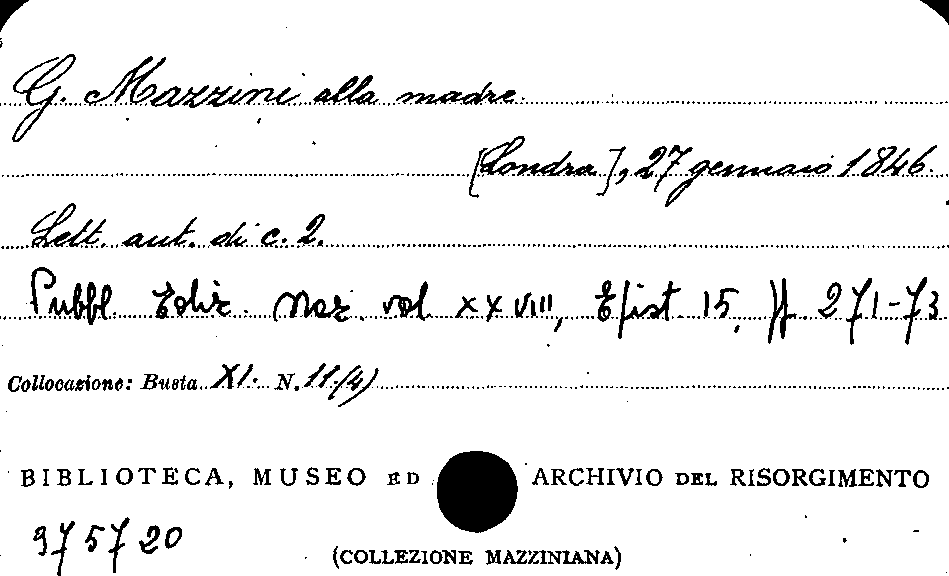 G. Mazzini alla madre.
[Londra], 27 gennaio 1846.
Lett. aut. di c. 2.
Pubbl. Ediz. Naz. vol XXVIII, Epist. 15, pp. 271-73
Collocazione: Busta XI. N. 11.(4)
BIBLIOTECA, MUSEO ED ARCHIVIO DEL RISORGIMENTO
975720
(COLLEZIONE MAZZINIANA)